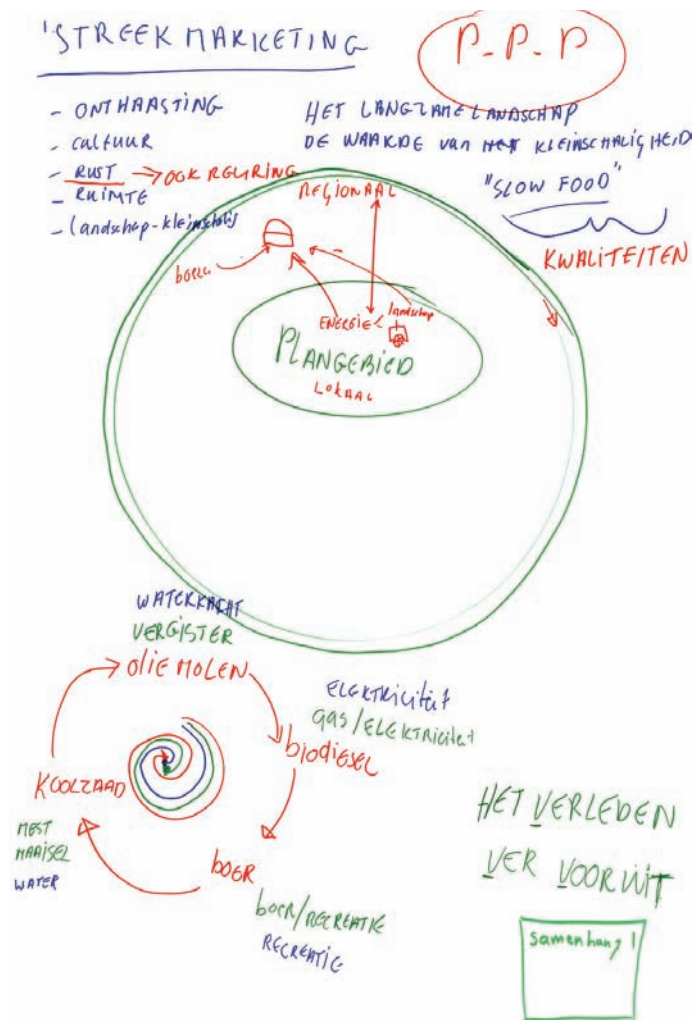 'STREEKMARKETING
P-P-P
- ONTHAASTING
- cultuur
- RUST → OOK REURING
- RUIMTE
- landschap-kleinschalig
HET LANGZAME LANDSCHAP
DE WAARDE van HET KLEINSCHALIGHEID
"SLOW FOOD"
KWALITEITEN
REGIONAAL
boer
ENERGIE
landschap
PLANGEBIED
LOKAAL
WATERKRACHT
VERGISTER
OLIEMOLEN
ELEKTRICITEIT
gas/ELEKTRICITEIT
biodiesel
KOOLZAAD
MEST
MAAISEL
WATER
boer
boer/RECREATIE
RECREATIE
HET VERLEDEN
VER VOORUIT
samenhang!